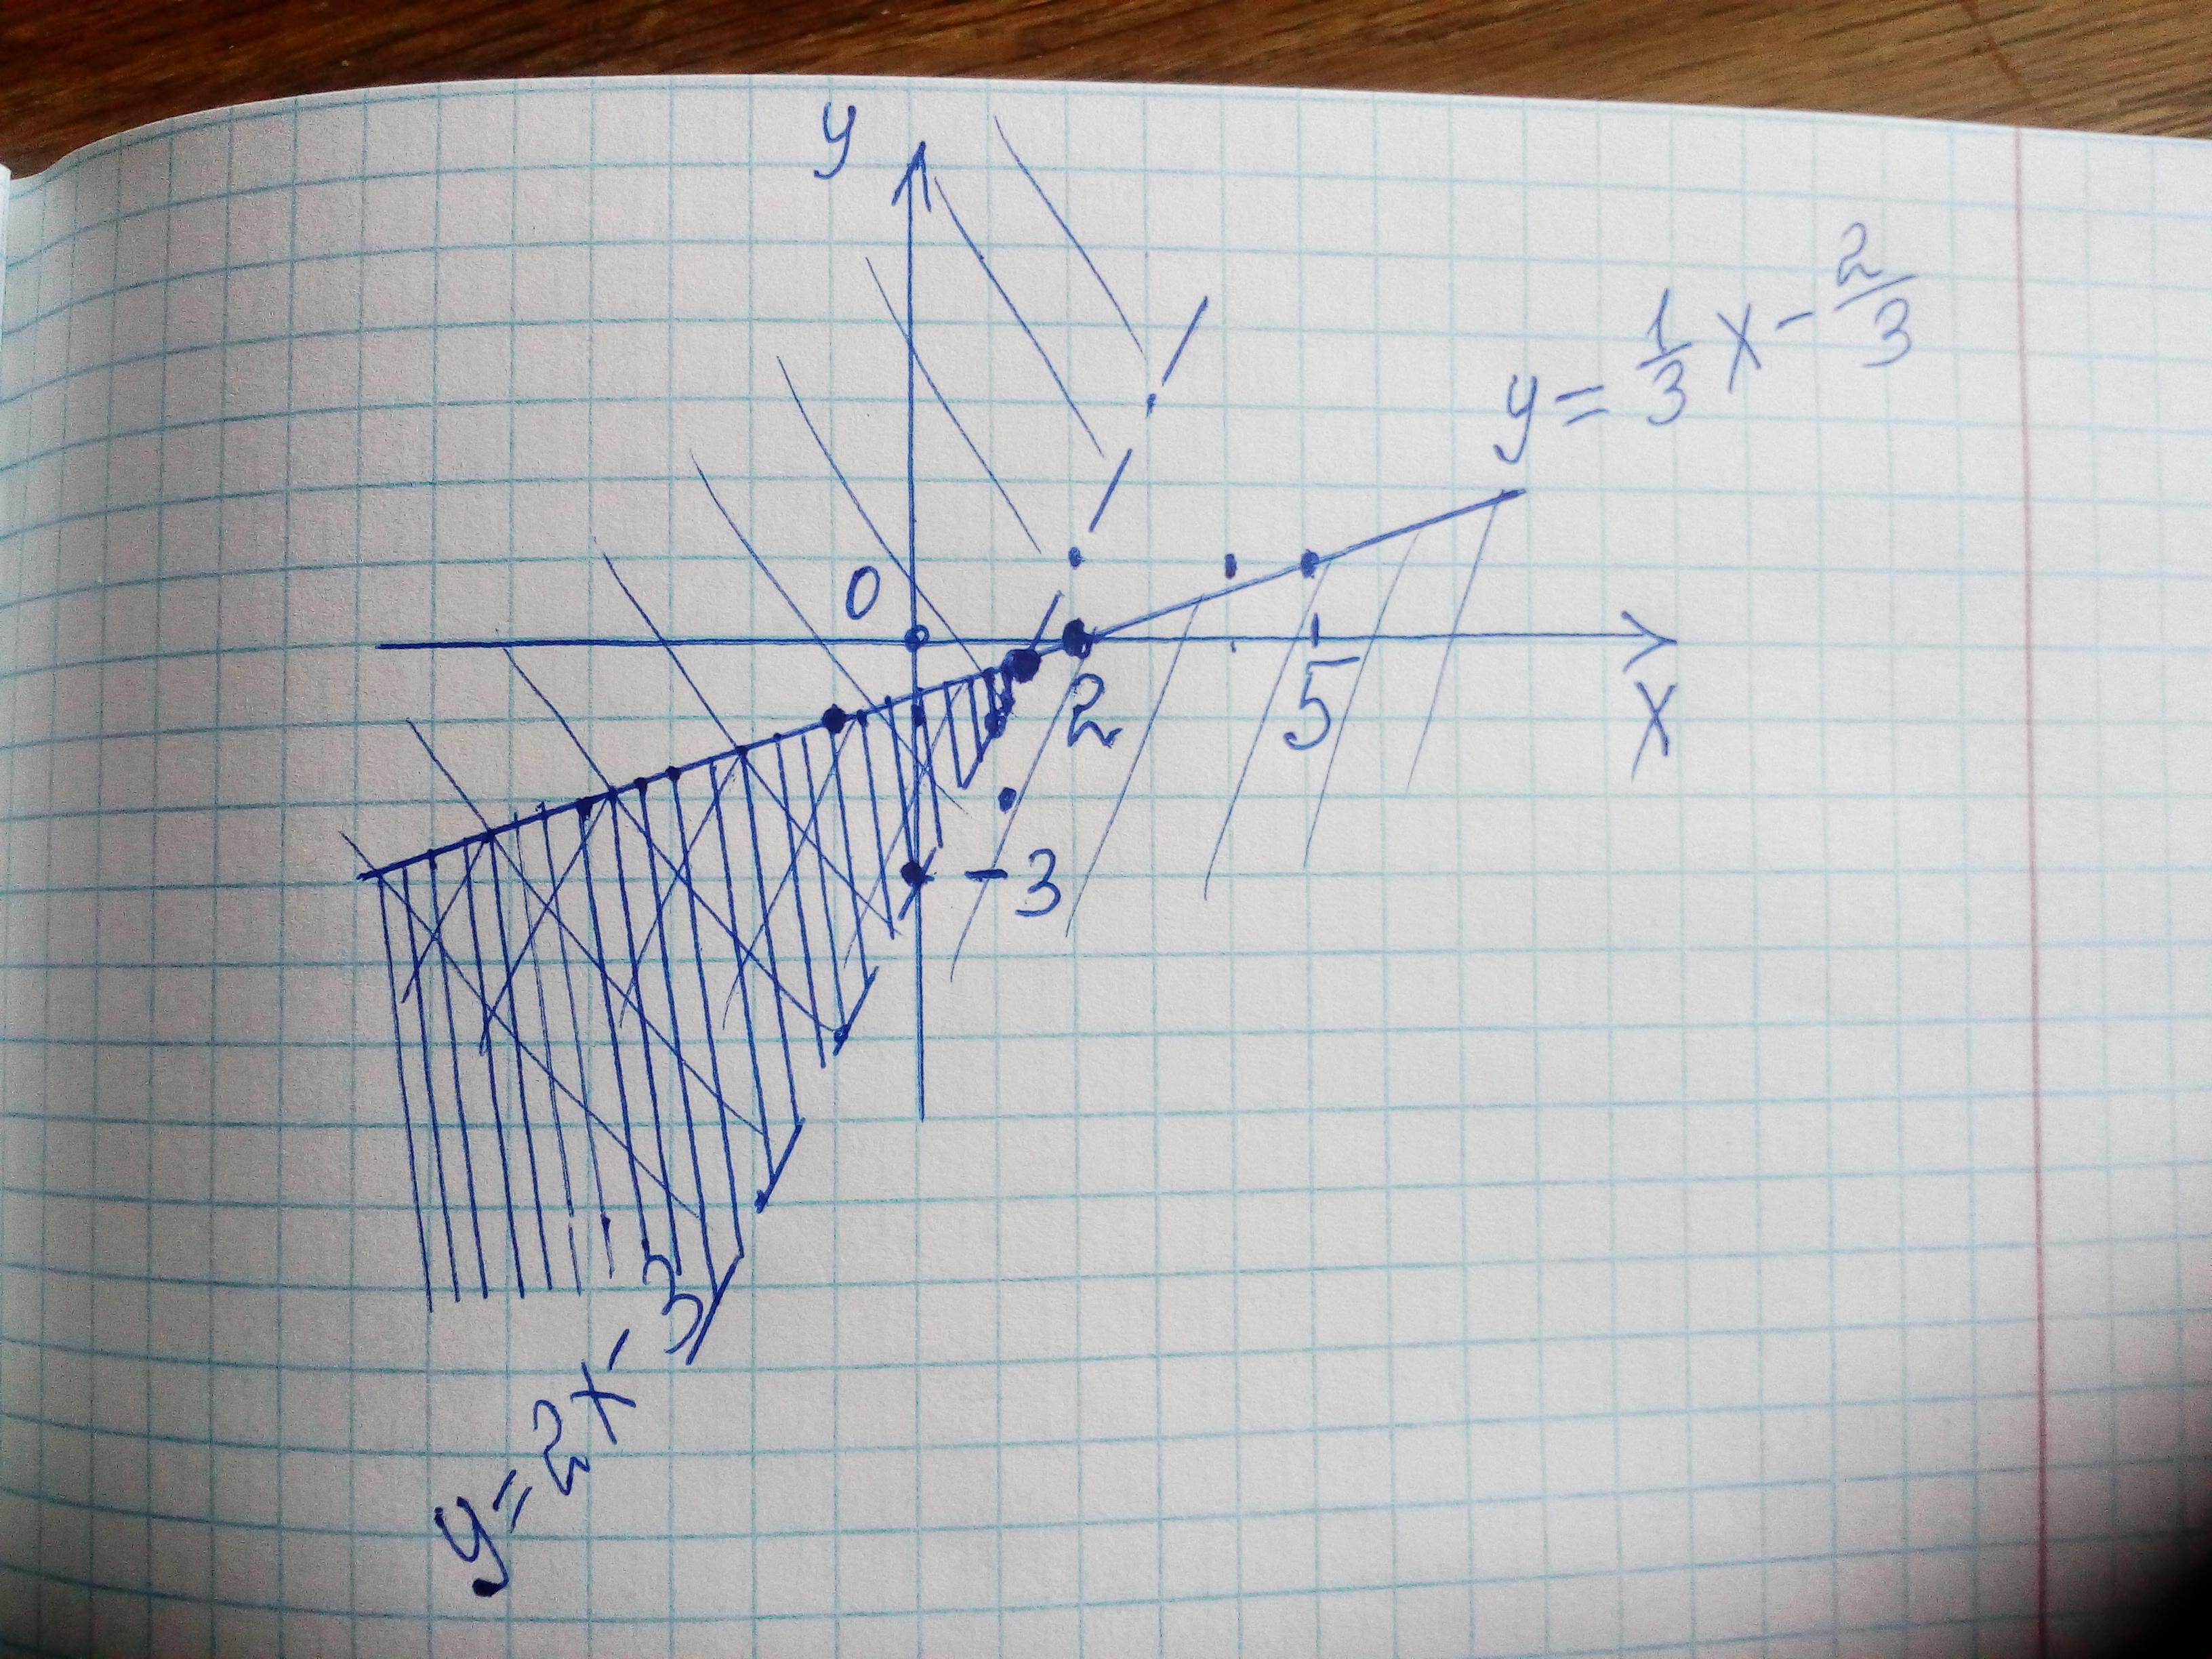 y
y = 1/3 x - 2/3
0
2
5
x
-3
y = 2x - 3